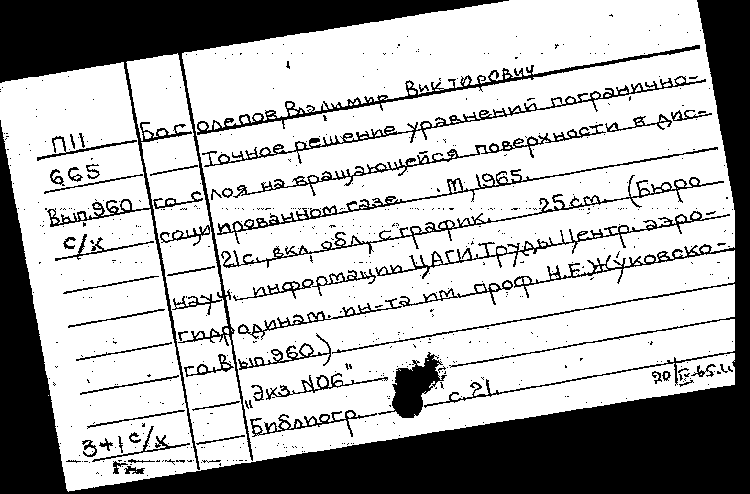 П11
665
Вып.960
с/х
Богolепов, Владимир Викторович
Точное решение уравнений погранично-
го слоя на вращающейся поверхности в дис-
социированном газе. М., 1965.
21с., вкл. обл., с график. 25см. (Бюро
науч. информации ЦАГИ. Труды Центр. аэро-
гидродинам. ин-та им. проф. Н.Е.Жуковско-
го. Вып.960.)
"Экз. №06".
Библиогр. с.21.
3+1 с/х
20/IX-65.